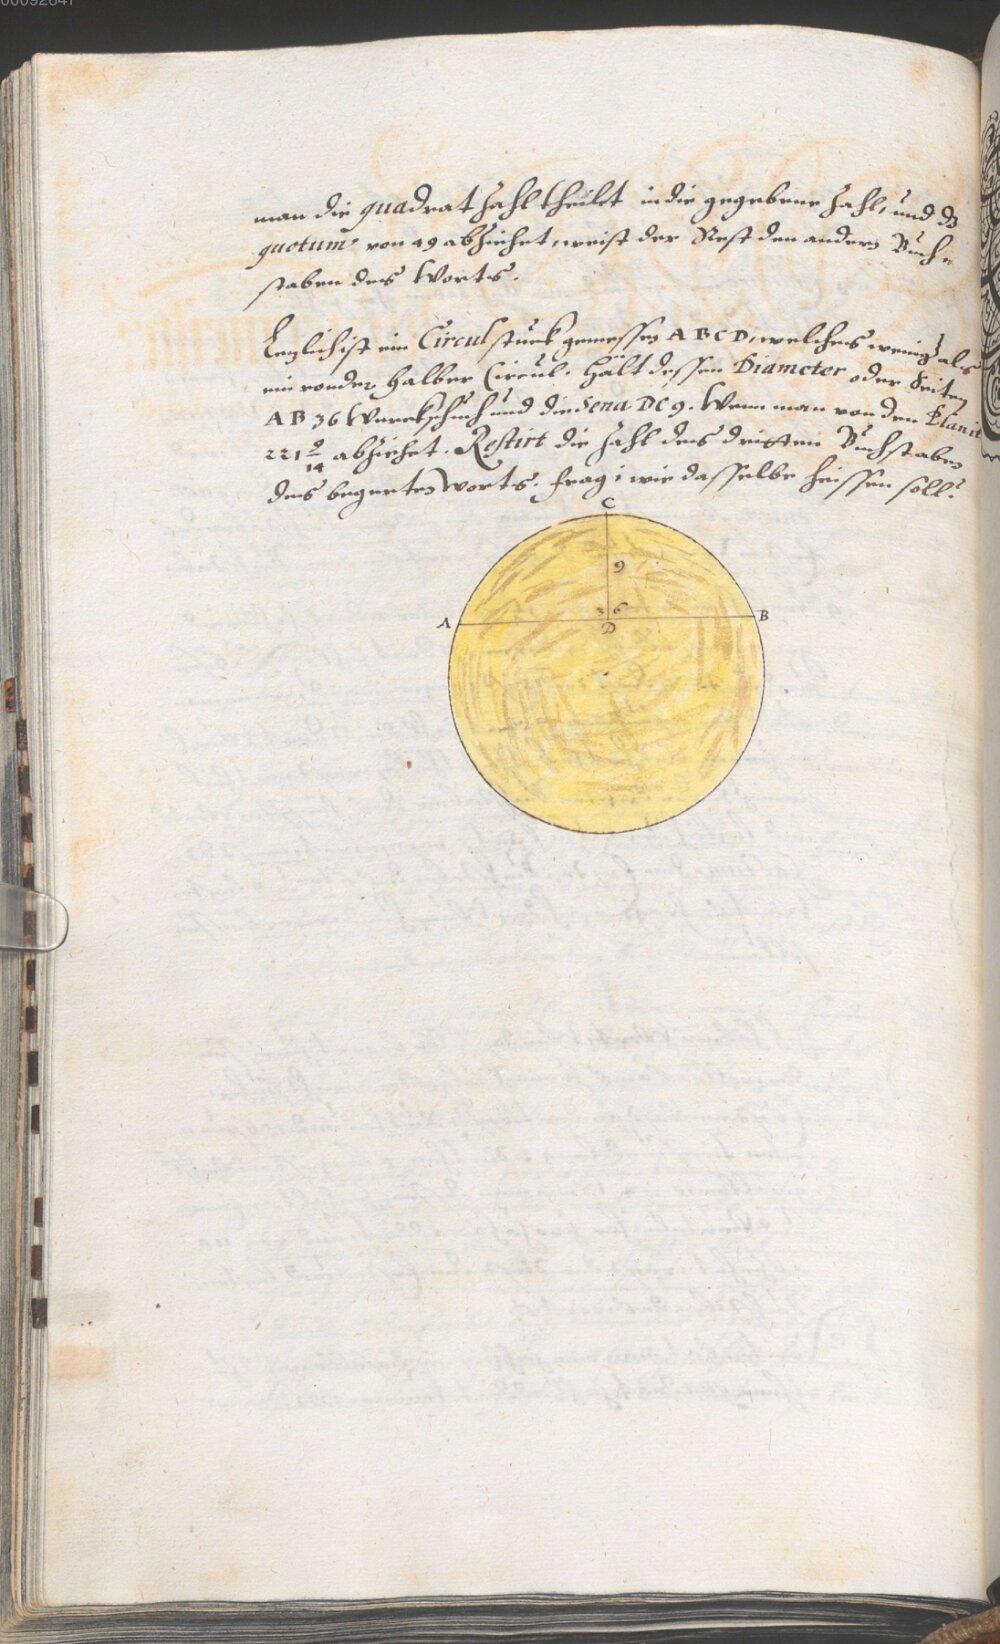 00092841
man die quadrat Zahl theilt in die gegebene Zahl, und dz
quotum von 49 abziehet, weist der Rest den andern Buch=
staben des Worts.
Letzlich ist ein Circul stuck gemessen ABCD, welches weniger als
ein ronder halber Circul. Hält dessen Diameter oder Seiten
AB 36 Werckschuh und die Sena DC 9. Wenn man von den Planit
221 9/14 abziehet. Restirt die Zahl des dritten Buchstaben
des begerten Worts. frag i wie dasselbe heissen soll?
C
9
A 36 B
D